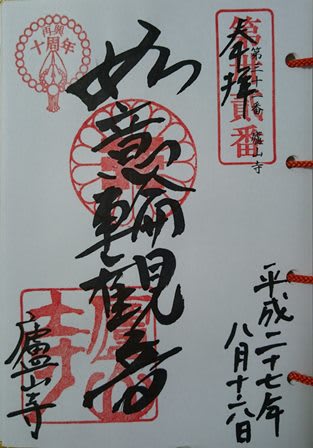 奉拝
第三十二番 廬山寺
第卅貳番
再興
十周年
如意輪観音
平成二十七年
八月十六日
廬山寺
廬山寺